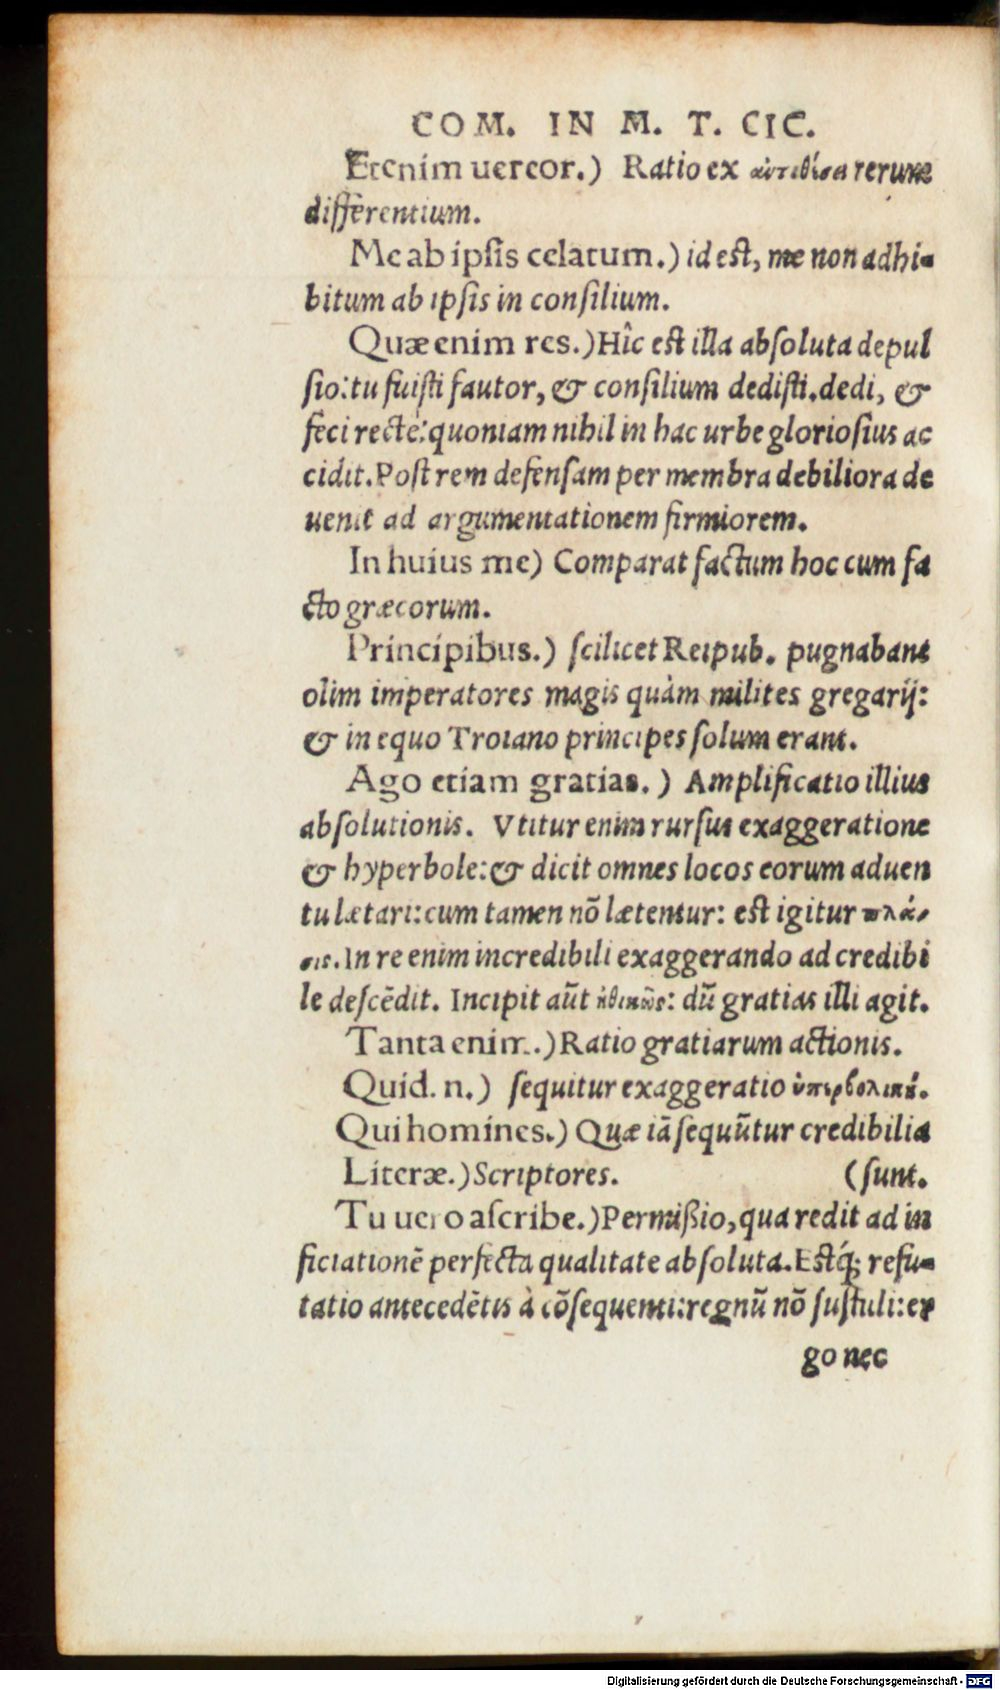 COM. IN M. T. CIC.
Etenim uereor.) Ratio ex ἀντιθέσει rerum
differentium.
Me ab ipsis celatum.) id est, me non adhi-
bitum ab ipsis in consilium.
Quæ enim res.) Hîc est illa absoluta depul
sio: tu fuisti fautor, & consilium dedisti. dedi, &
feci recte: quoniam nihil in hac urbe gloriosius ac
cidit. Post rem defensam per membra debiliora de
uenit ad argumentationem firmiorem.
In huius me) Comparat factum hoc cum fa
cto græcorum.
Principibus.) scilicet Reipub. pugnabant
olim imperatores magis quàm milites gregarij:
& in equo Troiano principes solum erant.
Ago etiam gratias.) Amplificatio illius
absolutionis. Vtitur enim rursus exaggeratione
& hyperbole: & dicit omnes locos eorum aduen
tu lætari: cum tamen nō lætentur: est igitur πλά-
σις. In re enim incredibili exaggerando ad credibi
le descēdit. Incipit aūt ἠθικῶς: dū gratias illi agit.
Tanta enim.) Ratio gratiarum actionis.
Quid. n.) sequitur exaggeratio ὑπερβολική.
Qui homines.) Quæ iā sequūtur credibilia
Literæ.) Scriptores. (sunt.
Tu uero ascribe.) Permißio, qua redit ad in
ficiationē perfecta qualitate absoluta. Estq́; refu-
tatio antecedētis à cōsequenti: regnū nō sustuli: er
go nec
Digitalisierung gefördert durch die Deutsche Forschungsgemeinschaft - DFG